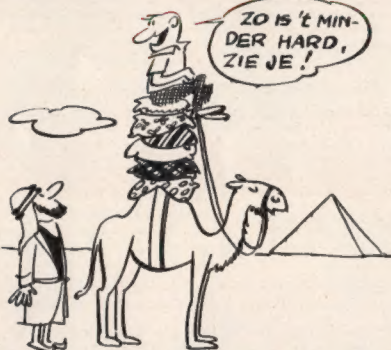 ZO IS 't MIN-
DER HARD,
ZIE JE!